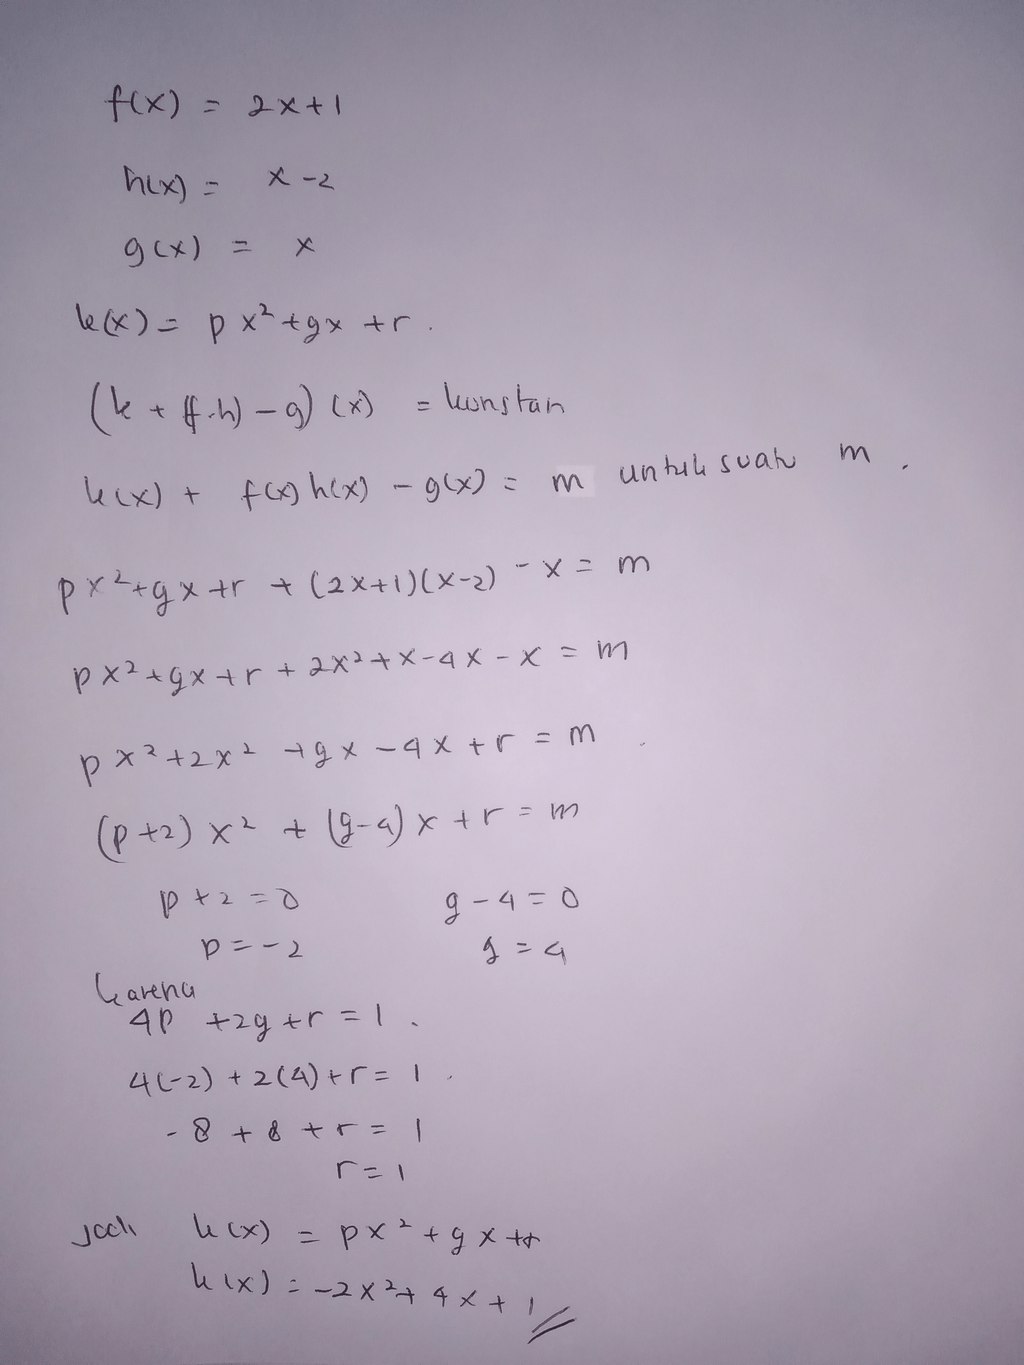 f(x) = 2x+1
h(x) = x-2
g(x) = x
k(x) = px²+qx+r.
(k + (f.h) - g)(x) = konstan
k(x) + f(x)h(x) - g(x) = m untuk suatu m.
px²+qx+r + (2x+1)(x-2) - x = m
px²+qx+r + 2x²+x-4x-x = m
px²+2x²+qx-4x+r = m
(p+2)x² + (q-4)x+r = m
p+2=0 q-4=0
p=-2 q=4
karena
4p +2q+r=1.
4(-2)+2(4)+r=1
-8+8+r=1
r=1
jadi k(x) = px²+qx+r
k(x) = -2x²+4x+1